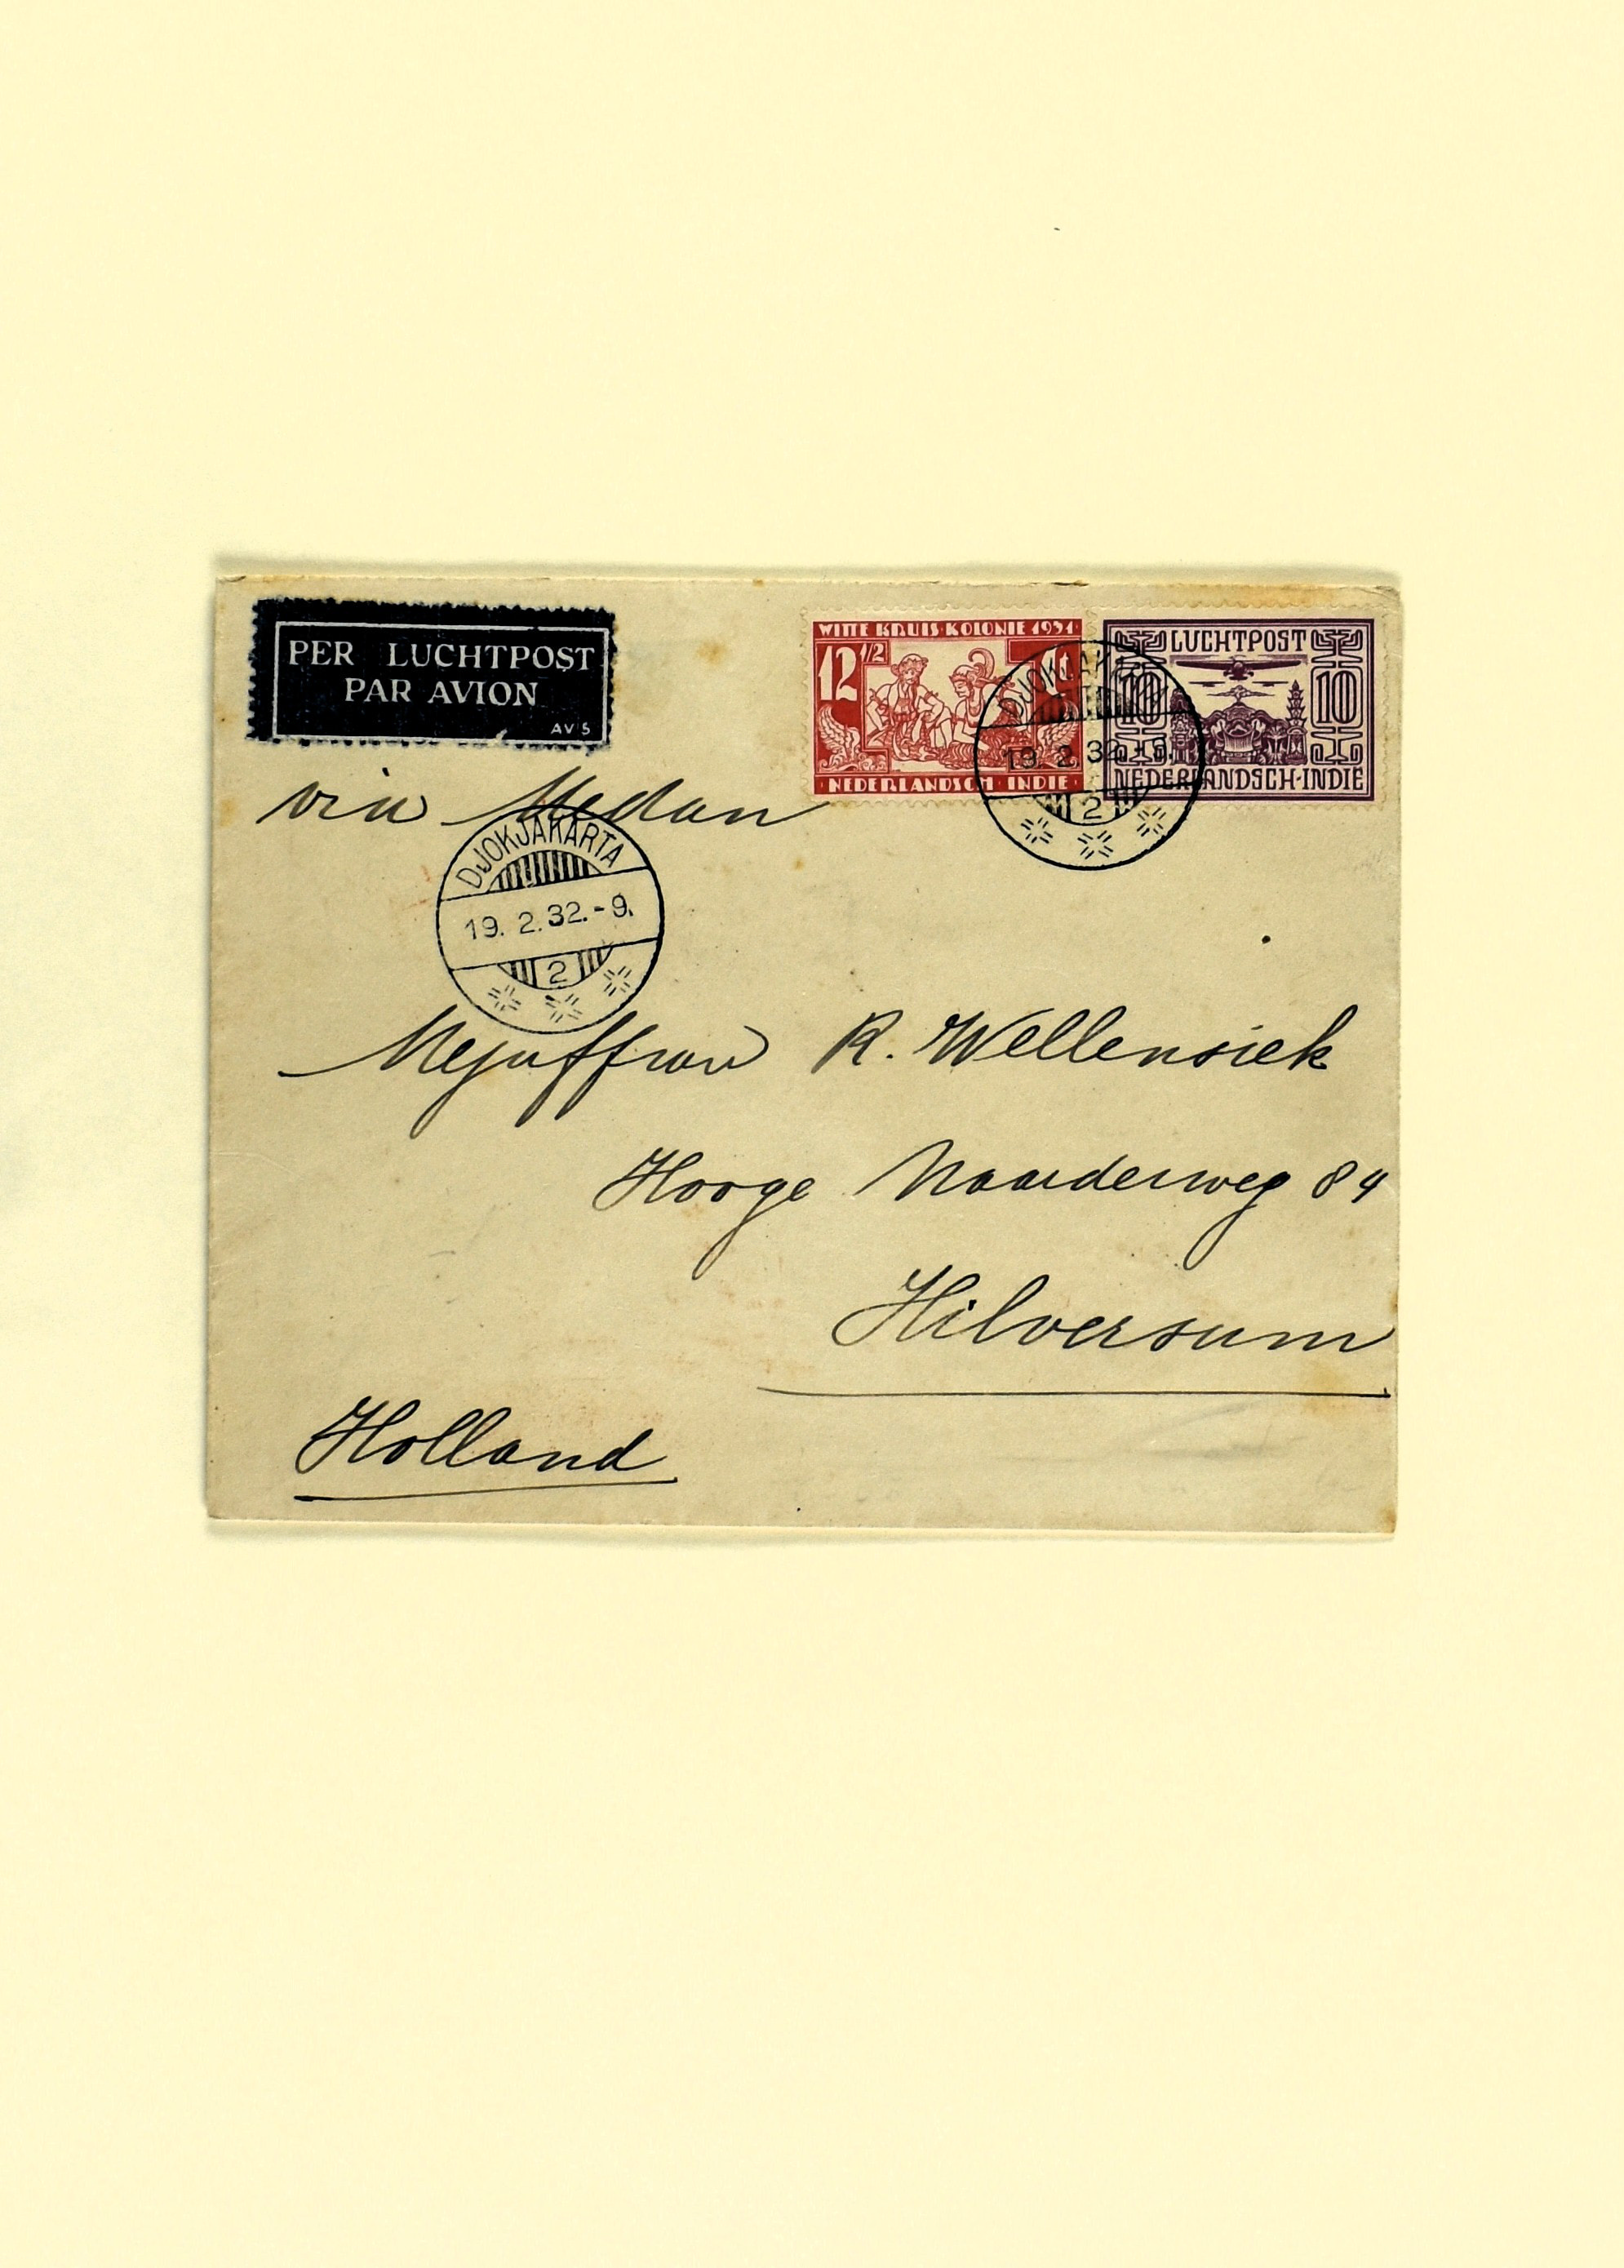 PER LUCHTPOST
PAR AVION
AV 5
WITTE KRUIS KOLONIE 1931
12 1/2 ct
NEDERLANDSCH · INDIE
LUCHTPOST
10 10
NEDERLANDSCH-INDIE
DJOKJAKARTA
19. 2. 32.-9.
2
via Medan
DJOKJAKARTA
19. 2. 32.-9.
2
Mejuffrou R. Wellensiek
Hooge Naarderweg 84
Hilversum
Holland